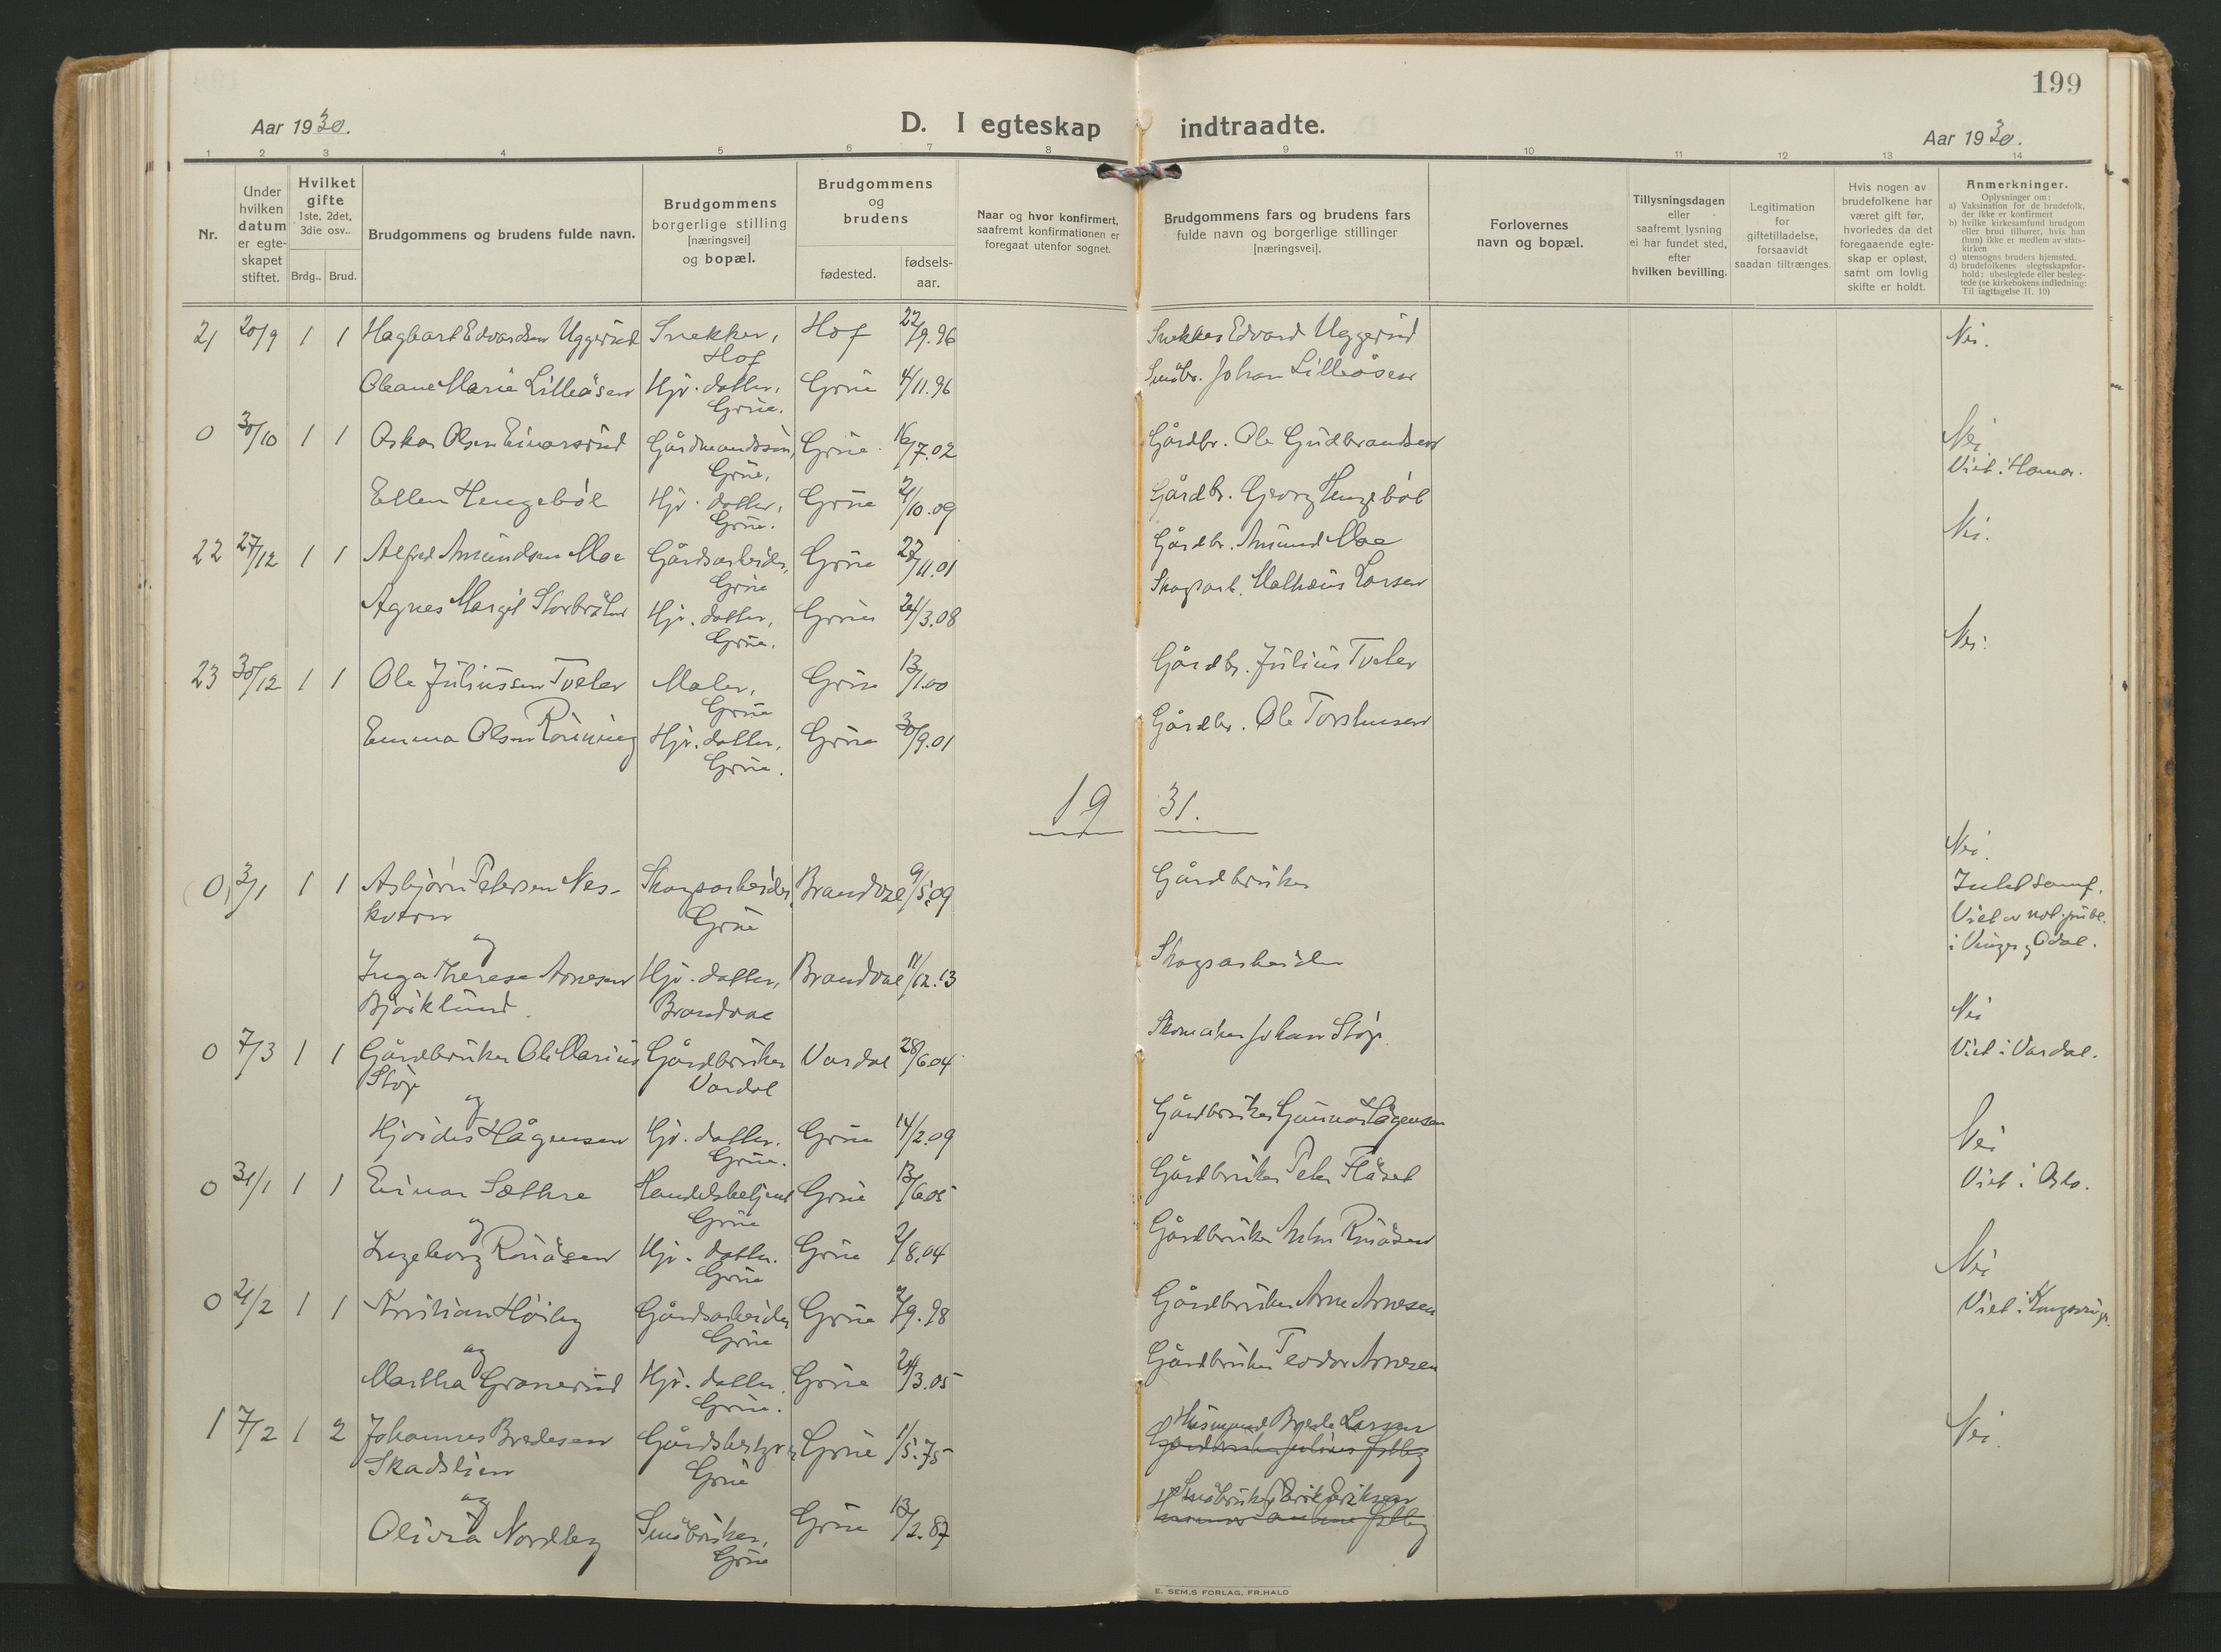 199
Aar 1930.
D. I egteskap indtraadte.
Aar 1930.
1 2 3 4 5 6 7 8 9 10 11 12 13 14
Nr.
Under hvilken datum er egteskapet stiftet.
Hvilket gifte 1ste, 2det, 3die osv..
Brdg.. Brud.
Brudgommens og brudens fulde navn.
Brudgommens borgerlige stilling [næringsvei] og bopæl.
Brudgommens og brudens
fødested.
fødsels-aar.
Naar og hvor konfirmert, saafremt konfirmationen er foregaat utenfor sognet.
Brudgommens fars og brudens fars fulde navn og borgerlige stillinger [næringsvei].
Forlovernes navn og bopæl.
Tillysningsdagen eller saafremt lysning ei har fundet sted, efter hvilken bevilling.
Legitimation for giftetilladelse, forsaavidt saadan tiltrænges.
Hvis nogen av brudefolkene har været gift før, hvorledes da det foregaaende egteskap er opløst, samt om lovlig skifte er holdt.
Anmerkninger.
Oplysninger om:
a) Vaksination for de brudefolk, der ikke er konfirmert
b) hvilke kirkesamfund brudgom eller brud tilhører, hvis han (hun) ikke er medlem av statskirken
c) utensogns bruders hjemsted.
d) brudefolkenes slegtsskapsforhold: ubeslegtede eller beslegtede (se kirkebokens indledning: Til iagttagelse II. 10)
21 20/9 1 1 Hagbart Edvardsen Uggerud Snekker, Hof Hof 22/9.96 Snekker Edvard Uggerud Nei.
Oleane Marie Lilleåsen Hjv. datter, Grue. Grue 4/11.96 Småbr. Johan Lilleåsen
0 30/10 1 1 Oskar Olsen Einarsrud Gårdmandssøn, Grue. Grue 16/7.02 Gårdbr. Ole Gudbrandsen Nei
Viet i Hamar.
Ellen Hengebøl Hjv. datter, Grue. Grue 2/10.09 Gårdbr. Georg Hengebøl
22 27/12 1 1 Alfred Amundsen Moe Gårdsarbeider, Grue Grue 27/11.01 Gårdbr. Amund Moe Nei.
Agnes Margit Storbråten Hjv. datter, Grue. Grue 24/3.08 Skogsarb. Matheus Larsen
23 30/12 1 1 Ole Juliussen Tveter Maler, Grue Grue 13/1.00 Gårdbr. Julius Tveter Nei.
Emma Olsen Rönning Hjv. datter, Grue. Grue 30/9.01 Gårdbr. Ole Torshusen
19 31.
0 3/1 1 1 Asbjørn Petersen Neskvern Skogsarbeider, Grue Brandval 9/5.09 Gårdbruker Nei.
Viet av not. publ. i Vinger og Odal.
og
Inga Therese Arnesen Bjørklund. Hjv. datter, Brandval Brandval 11/12.13 Skogsarbeider
0 7/3 1 1 Gårdbruker Ole Marius Støp Gårdbruker Vardal Vardal 28/6.04 Skomaker Johan Støp. Nei
Viet i Vardal.
og
Hjørdis Hågensen Hjv. datter. Grue. Grue 14/2.09 Gårdbruker Gunnar Hågensen
0 31/1 1 1 Einar Sæthre Handelsbetjent Grue Grue 13/6.05 Gårdbruker Peter Flåset Nei
Viet i Oslo.
og
Ingeborg Rønåsen Hjv. datter. Grue Grue 2/8.04 Gårdbruker Rønåsen
0 21/2 1 1 Kristian Høiby Gårdsarbeider Grue Grue 7/9.98 Gårdbruker Arne Arnesen Nei
Viet i Kongsvinger.
og
Martha Granerud Hjv. datter. Grue. Grue 24/3.05 Gårdbruker Teodor Arnesen
1 7/2 1 2 Johannes Bredesen Skadslien Gårdsbestyrer Grue Grue 1/5.75 Husmand Brede Larsen Nei.
og
Olivia Nordby Småbruker, Grue Grue 13/2.87 Småbruker Erik Eriksen
E. SEM.S FORLAG, FR.HALD